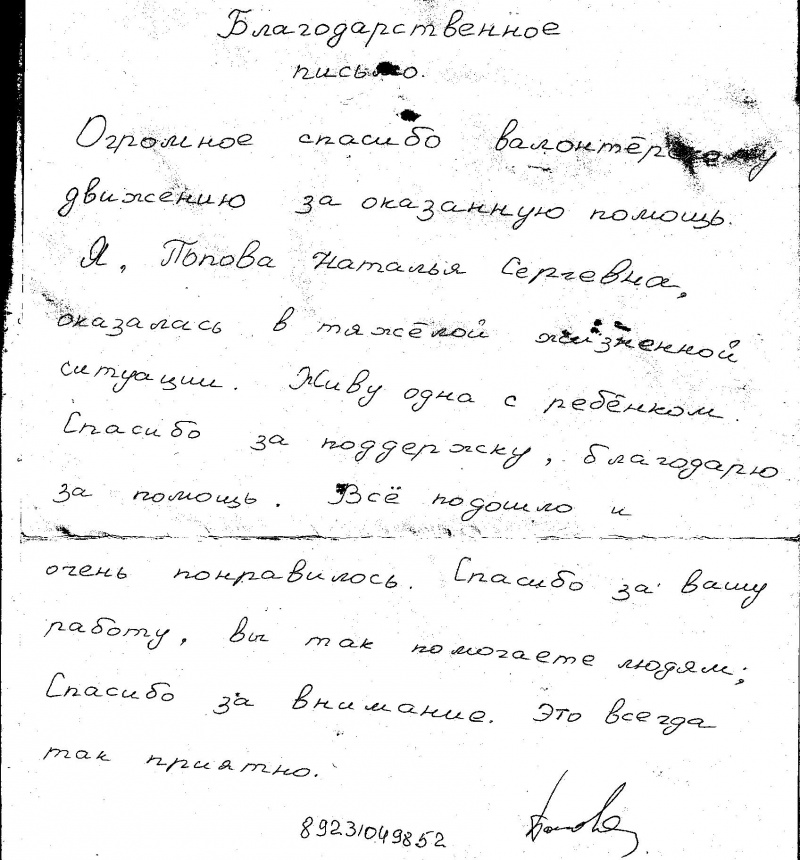 Благодарственное
письмо.
Огромное спасибо валонтёрскому
движению за оказанную помощь.
Я, Попова Наталья Сергевна,
оказалась в тяжёлой жизненной
ситуации. Живу одна с ребёнком.
Спасибо за поддержку, благодарю
за помощь. Всё подошло и
очень понравилось. Спасибо за вашу
работу, вы так помогаете людям;
Спасибо за внимание. Это всегда
так приятно.
89231049852